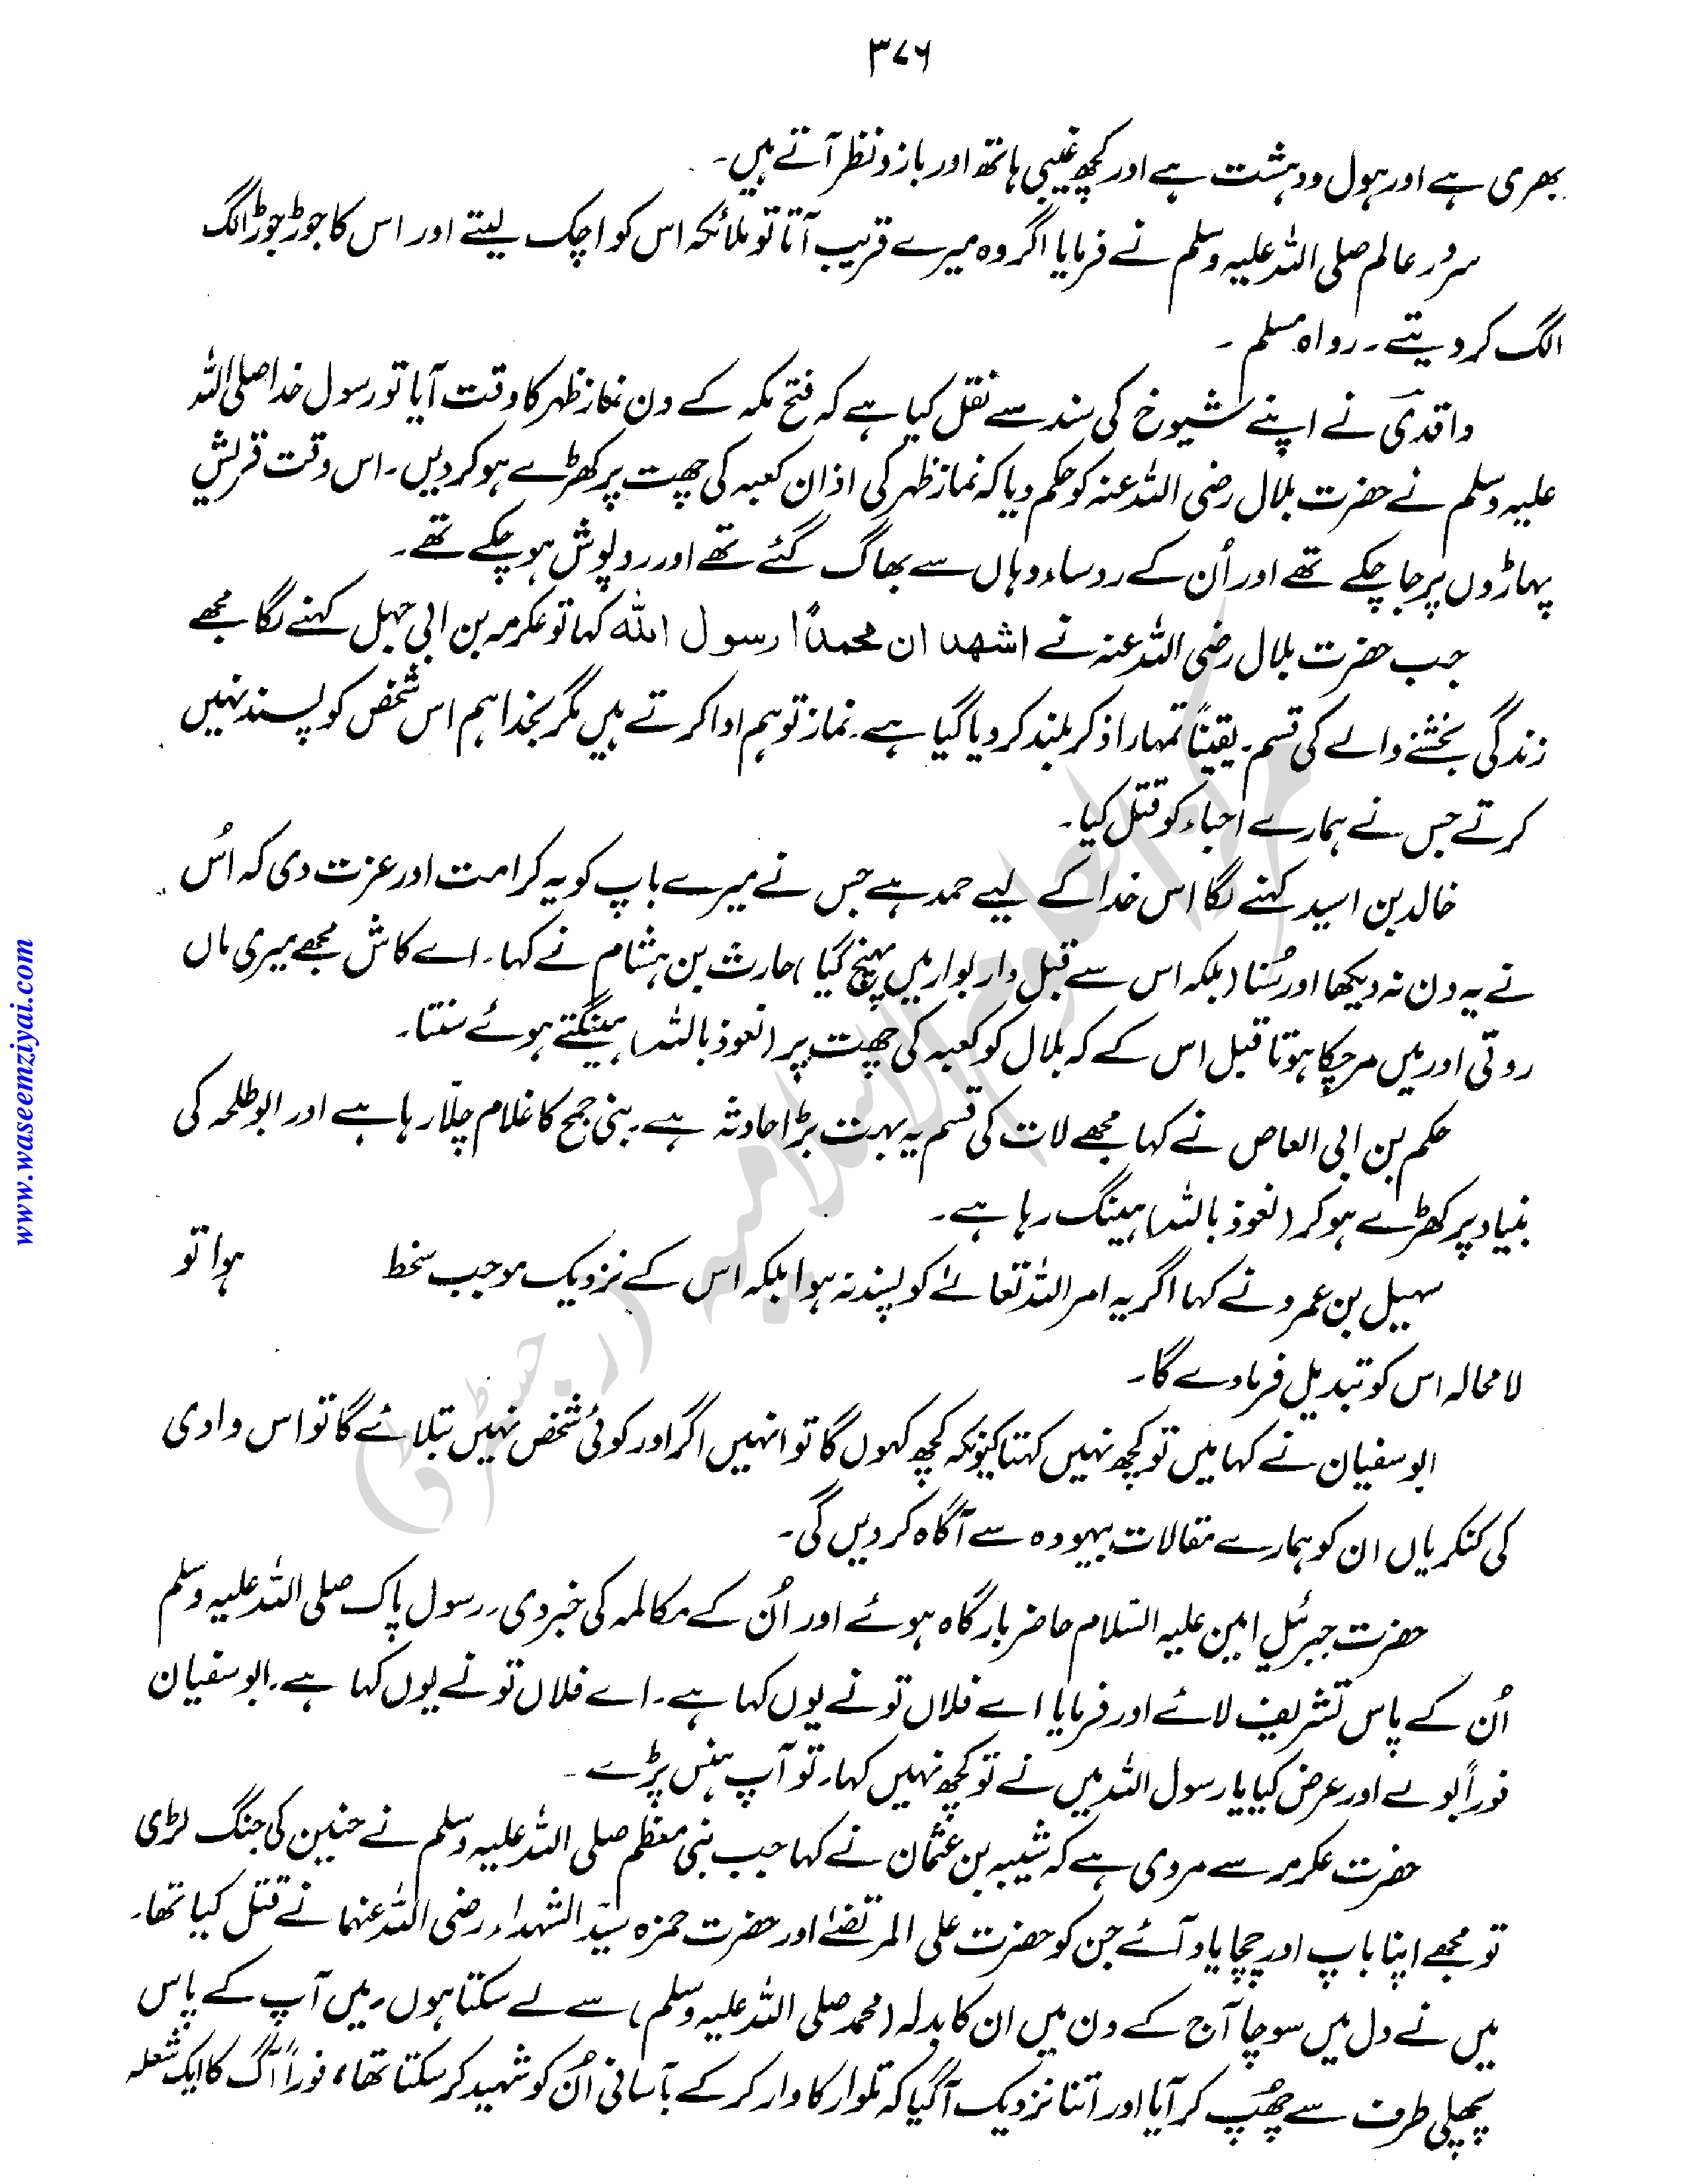 ۳۷۶
بھری ہے اور ہول ودہشت ہے اور کچھ غیبی ہاتھ اور بازو نظر آتے ہیں۔
سرور عالم صلی اللہ علیہ وسلم نے فرمایا اگر وہ میرے قریب آتا تو ملائکہ اس کو اچک لیتے اور اس کا جوڑ جوڑ الگ
الگ کر دیتے۔ رواہ مسلم۔
واقدی نے اپنے شیوخ کی سند سے نقل کیا ہے کہ فتح مکہ کے دن نماز ظہر کا وقت آیا تو رسول خدا صلی اللہ
علیہ وسلم نے حضرت بلال رضی اللہ عنہ کو حکم دیا کہ نماز ظہر کی اذان کعبہ کی چھت پر کھڑے ہو کر دیں۔ اس وقت قریش
پہاڑوں پر جا چکے تھے اور اُن کے روساء وہاں سے بھاگ گئے تھے اور روپوش ہو چکے تھے۔
جب حضرت بلال رضی اللہ عنہ نے اشھد ان محمدًا رسول اللہ کہا تو عکرمہ بن ابی جہل کہنے لگا مجھے
زندگی بخشنے والے کی قسم۔ یقیناً تمہارا ذکر بلند کر دیا گیا ہے۔ نماز تو ہم ادا کرتے ہیں مگر بخدا ہم اس شخص کو پسند نہیں
کرتے جس نے ہمارے احباء کو قتل کیا۔
خالد بن اسید کہنے لگا اس خدا کے لیے حمد ہے جس نے میرے باپ کو یہ کرامت اور عزت دی کہ اُس
نے یہ دن نہ دیکھا اور سُنا (بلکہ اس سے قبل دار بوار میں پہنچ گیا) حارث بن ہشام نے کہا۔ اے کاش مجھے میری ماں
روتی اور میں مر چکا ہوتا قبل اس کے کہ بلال کو کعبہ کی چھت پر (نعوذ باللہ) ہینگتے ہوئے سنتا۔
حکم بن ابی العاص نے کہا مجھے لات کی قسم یہ بہت بڑا حادثہ ہے۔ بنی جمح کا غلام چلّا رہا ہے اور ابو طلحہ کی
بنیاد پر کھڑے ہو کر (نعوذ باللہ) ہینگ رہا ہے۔
سہیل بن عمرو نے کہا اگر یہ امر اللہ تعالےٰ کو پسند نہ ہوا بلکہ اس کے نزدیک موجب سخط ہوا تو
لا محالہ اس کو تبدیل فرما دے گا۔
ابو سفیان نے کہا میں تو کچھ نہیں کہتا کیونکہ کچھ کہوں گا تو انہیں اگر اور کوئی شخص نہیں بتلائے گا تو اس وادی
کی کنکریاں ان کو ہمارے مقالات بیہودہ سے آگاہ کر دیں گی۔
حضرت جبرئیل امین علیہ السّلام حاضر بارگاہ ہوئے اور اُن کے مکالمہ کی خبر دی۔ رسول پاک صلی اللہ علیہ وسلم
اُن کے پاس تشریف لائے اور فرمایا اے فلاں تو نے یوں کہا ہے۔ اے فلاں تو نے یوں کہا ہے۔ ابو سفیان
فوراً بولے اور عرض کیا یا رسول اللہ میں نے تو کچھ نہیں کہا۔ تو آپ ہنس پڑے۔
حضرت عکرمہ سے مروی ہے کہ شیبہ بن عثمان نے کہا جب نبی معظم صلی اللہ علیہ وسلم نے حنین کی جنگ لڑی
تو مجھے اپنا باپ اور چچا یاد آئے جن کو حضرت علی المرتضےٰ اور حضرت حمزہ سیّد الشہداء رضی اللہ عنہما نے قتل کیا تھا۔
میں نے دل میں سوچا آج کے دن میں ان کا بدلہ (محمد صلی اللہ علیہ وسلم) سے لے سکتا ہوں۔ میں آپ کے پاس
پچھلی طرف سے چھُپ کر آیا اور اتنا نزدیک آ گیا کہ تلوار کا وار کر کے بآسانی اُن کو شہید کر سکتا تھا، فوراً آگ کا ایک شعلہ
www.waseemziyai.com
مرکز العلوم الاسلامیہ (رجسٹرڈ)